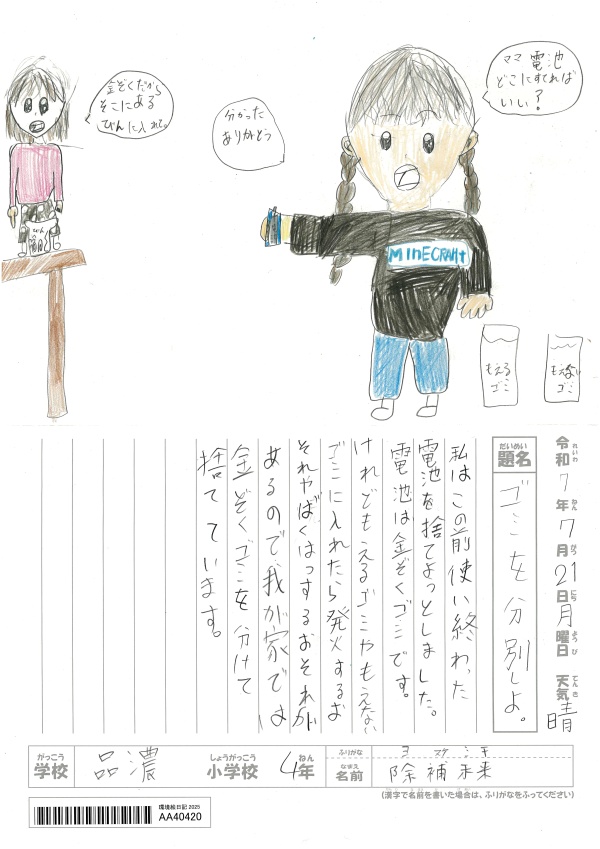 ママ電池
どこにすてれば
いい?
分かった
ありがとう
金ぞくだから
そこにある
びんに入れて。
MINECRAHt
びん
もえる
ゴミ
もえない
ゴミ
令和7年7月21日月曜日 天気晴
れいわ ねん がつ にち ようび てんき
だいめい
題名
ゴミを分別しよ。
私はこの前使い終わった
電池を捨てよっとしました。
電池は金ぞくゴミです。
けれどもえるゴミやもえない
ゴミに入れたら発火するお
それやばくはっするおそれが
あるので、我が家では
金ぞくゴミを分けて
捨てています。
がっこう しょうがっこう ねん ふりがな
学校 品濃 小学校 4年
なまえ
名前 除補未来
(漢字で名前を書いた場合は、ふりがなをふってください)
環境絵日記 2025
AA40420